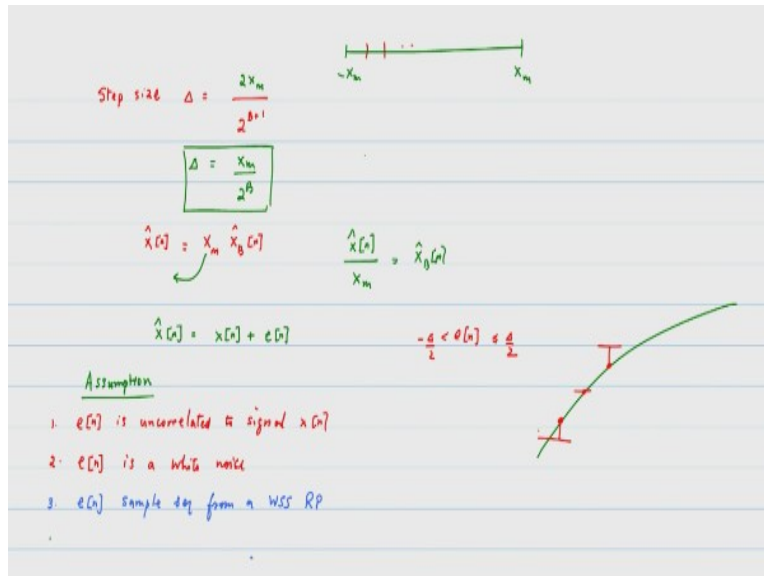 -Xₘ Xₘ
Step size Δ = 2Xₘ / 2^(B+1)
Δ = Xₘ / 2^B
x̂[n] = Xₘ x̂_B[n]
x̂[n] / Xₘ = x̂_B[n]
x̂[n] = x[n] + e[n]
-Δ/2 < e[n] ≤ Δ/2
Assumption
1. e[n] is uncorrelated to signal x[n]
2. e[n] is a white noise
3. e[n] sample seq from a WSS RP